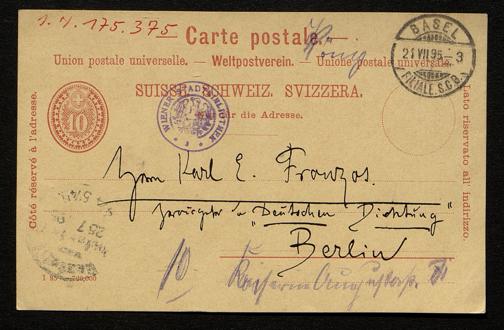 I. N. 175.375
Carte postale.
Union postale universelle. — Weltpostverein. — Unione postale universale.
SUISSE. SCHWEIZ. SVIZZERA.
für die Adresse.
Côté réservé à l'adresse.
Lato riservato all'indirizzo.
10
WIENER STADTBIBLIOTHEK
BASEL
21 VII 95 - 3
FILIALE S.C.B.
Herrn Karl E. Franzos.
Herausgeber d. "Deutschen Dichtung"
Berlin
10
Kaiserin Augustastr. 71